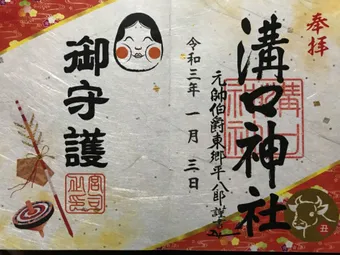 奉拝
溝口神社
元帥伯爵東郷平八郎謹書
令和三年 一月 三日
御守護
丑